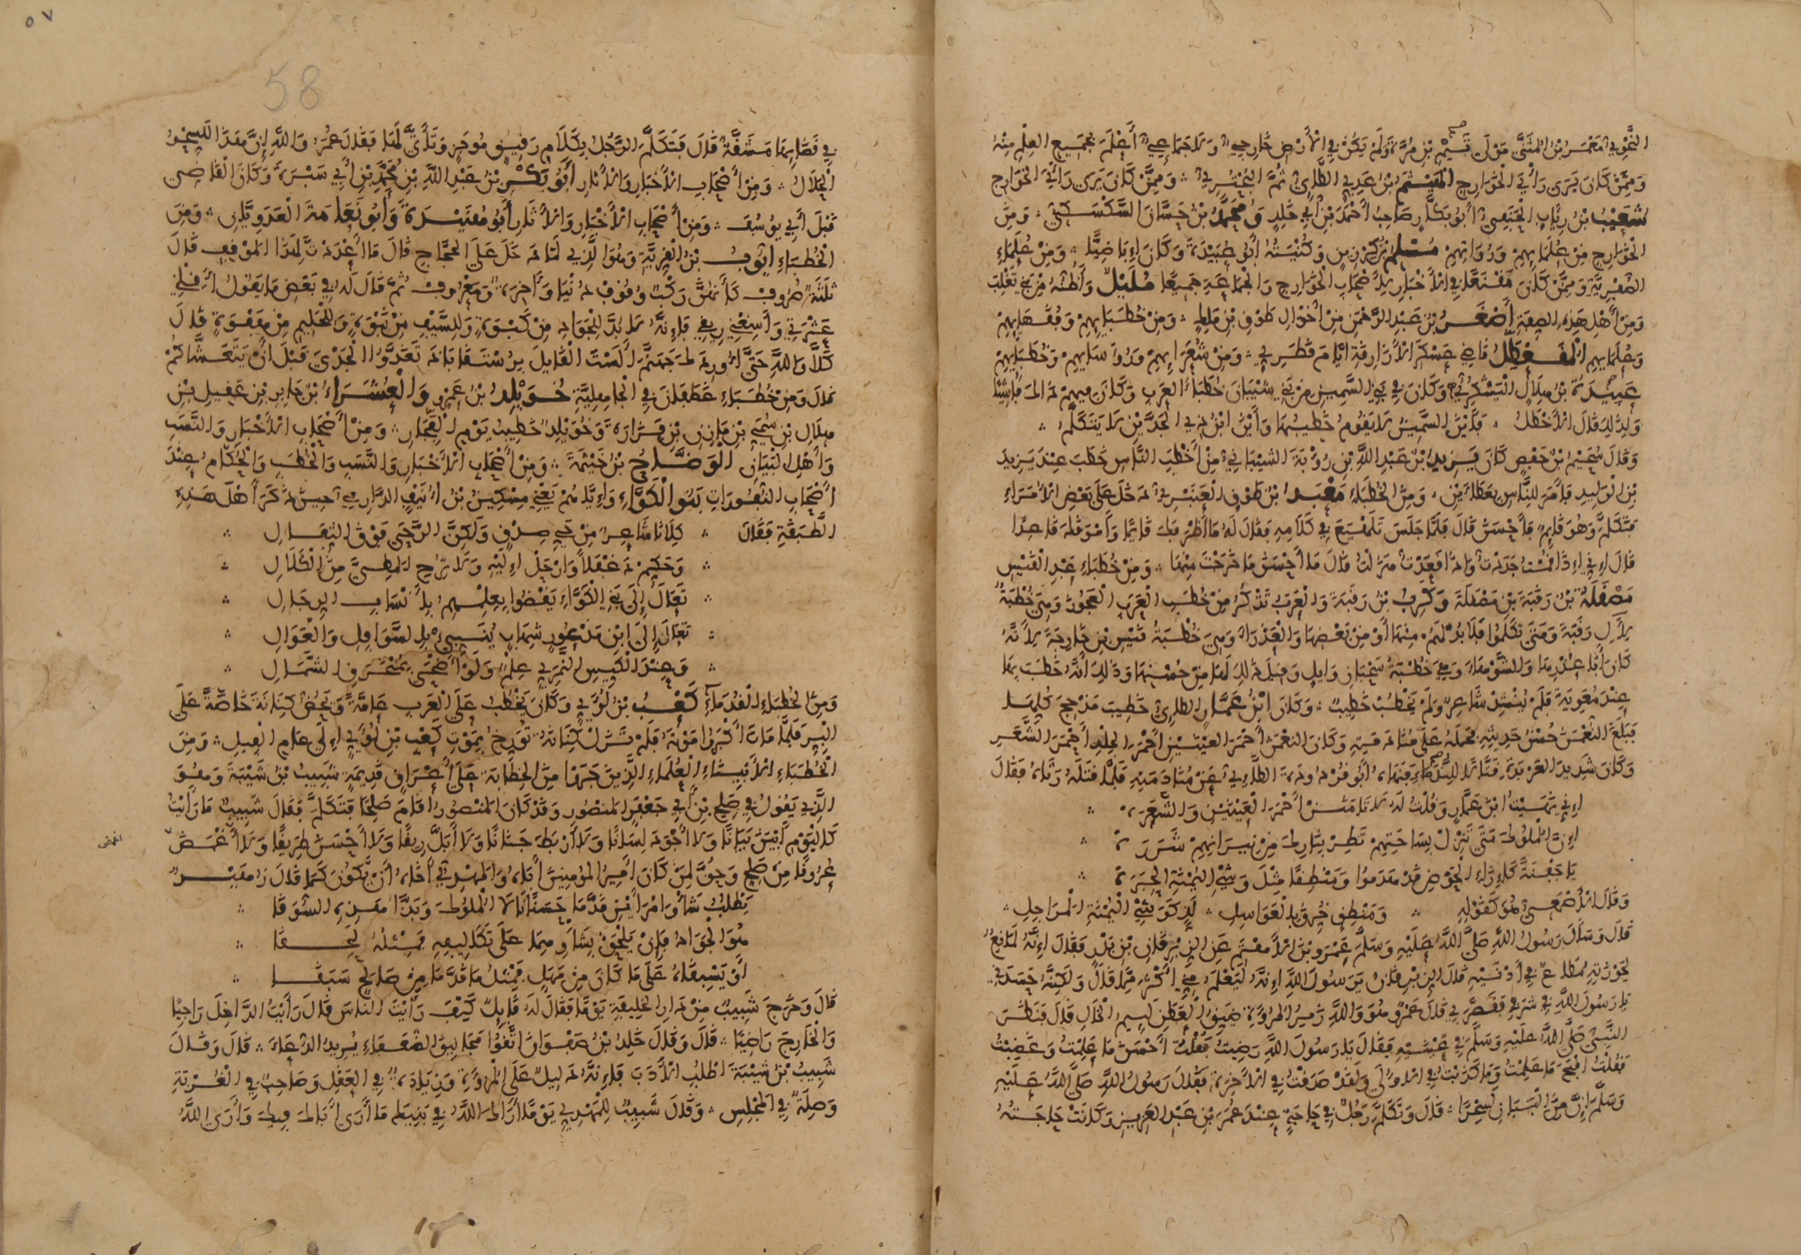 النَّحْوِيّ مَعْمَرُ بْنُ المُثَنَّى مَوْلَى تَيْمِ بْنِ مُرَّةَ وَلَمْ يَكُنْ فِي الْأَرْضِ خَارِجِيٌّ وَلَا جَمَاعِيٌّ أَعْلَمَ بِجَمِيعِ الْعِلْمِ مِنْهُ
وَمِمَّنْ كَانَ يَرَى رَأْيَ الْخَوَارِجِ الْهَيْثَمُ بْنُ عَدِيٍّ الطَّائِيُّ ثُمَّ الْبُحْتُرِيُّ وَمِمَّنْ كَانَ يَرَى رَأْيَ الْخَوَارِجِ
شُعَيْبُ بْنُ رِئَابٍ الْحَنَفِيُّ أَبُو بَكَّارٍ صَاحِبُ أَحْمَدَ بْنِ أَبِي خَالِدٍ وَمُحَمَّدُ بْنُ حَسَّانَ السَّكْسَكِيُّ وَمِنَ
الْخَوَارِجِ مِنْ عُلَمَائِهِمْ وَرُوَاتِهِمْ مُسْلِمُ بْنُ كُرْزِينٍ وَكُنْيَتُهُ أَبُو عُبَيْدَةَ وَكَانَ إِبَاضِيًّا وَمِنْ عُلَمَاءِ
الصُّفْرِيَّةِ وَمِمَّنْ كَانَ مَقْنَعًا فِي الْأَخْبَارِ لِأَصْحَابِ الْخَوَارِجِ وَالْجَمَاعَةِ جَمِيعًا مُلَيْلٌ وَأَظُنُّهُ مِنْ بَنِي تَغْلِبَ
وَمِنْ أَهْلِ هَذِهِ الصِّفَةِ أَصْغَرُ بْنُ عَبْدِ الرَّحْمَنِ مِنْ أَخْوَالِ طَوْقِ بْنِ مَالِكٍ وَمِنْ خُطَبَائِهِمْ وَفُقَهَائِهِمْ
وَعُلَمَائِهِمُ الْمُقَعْطَلُ قَاضِي عَسْكَرِ الْأَزَارِقَةِ أَيَّامَ قَطَرِيٍّ وَمِنْ شُعَرَائِهِمْ وَرُؤَسَائِهِمْ وَخُطَبَائِهِمْ
عَبِيدَةُ بْنُ هِلَالٍ الْيَشْكُرِيُّ وَكَانَ فِي بَنِي السَّمِينِ مِنْ بَنِي شَيْبَانَ خُطَبَاءُ الْعَرَبِ وَكَانَ فِيهِمْ ذَلِكَ فَاشِيًا
وَلِذَلِكَ قَالَ الْأَخْطَلُ فَأَيْنَ السَّمِينُ لَا يَقُومُ خَطِيبُهَا وَأَيْنَ ابْنُ ذِي الْجَدَّيْنِ لَا يَتَكَلَّمُ
وَقَالَ سُحَيْمُ بْنُ حَفْصٍ كَانَ يَزِيدُ بْنُ عَبْدِ اللَّهِ بْنِ رُؤْبَةَ الشَّيْبَانِيُّ مِنْ أَخْطَبِ النَّاسِ خَطَبَ عِنْدَ يَزِيدَ
بْنِ الْوَلِيدِ فَأَمَرَ لِلنَّاسِ بِعَطَاءَيْنِ وَمِنَ الْخُطَبَاءِ مَعْبَدُ بْنُ طَوْقٍ الْعَنْبَرِيُّ دَخَلَ عَلَى بَعْضِ الْأُمَرَاءِ
فَتَكَلَّمَ وَهُوَ قَائِمٌ فَأَحْسَنَ قَالَ فَلَمَّا جَلَسَ تَلَهْيَعَ فِي كَلَامِهِ فَقَالَ لَهُ مَا أَظْرَفَكَ قَائِمًا وَأَمْوَقَكَ قَاعِدًا
قَالَ إِنِّي إِذَا قُمْتُ جَدَدْتُ وَإِذَا قَعَدْتُ هَزَلْتُ قَالَ مَا أَحْسَنَ مَا خَرَجْتَ مِنْهَا وَمِنْ خُطَبَاءِ عَبْدِ الْقَيْسِ
مَصْقَلَةُ بْنُ رَقَبَةَ بْنِ مَصْقَلَةَ وَكَرِبُ بْنُ رَقَبَةَ وَالْعَرَبُ تَذْكُرُ مِنْ خُطَبِ الْعَرَبِ الْعَجُوزَ وَهِيَ خُطْبَةٌ
لِآلِ رَقَبَةَ وَمَتَى تَكَلَّمُوا فَلَا بُدَّ لَهُمْ مِنْهَا أَوْ مِنْ بَعْضِهَا وَالْعَذْرَاءَ وَهِيَ خُطْبَةُ قَيْسِ بْنِ خَارِجَةَ لِأَنَّهُ
كَانَ أَبَا عُذْرِهَا وَالشَّوْهَاءَ وَهِيَ خُطْبَةُ سَحْبَانِ وَائِلٍ وَقِيلَ ذَلِكَ لَهَا مِنْ حُسْنِهَا وَذَلِكَ أَنَّهُ خَطَبَ بِهَا
عِنْدَ مُعَوِيَةَ فَلَمْ يُنْشِدْ شَاعِرٌ وَلَمْ يَخْطُبْ خَطِيبٌ وَكَانَ ابْنُ عَمَّارٍ الطَّائِيُّ خَطِيبَ مَذْحِجَ كُلِّهَا
فَبَلَغَ النُّعْمَنَ حُسْنُ حَدِيثِهِ فَحَمَلَهُ عَلَى مُنَادَمَتِهِ وَكَانَ النُّعْمَنُ أَحْمَرَ الْعَيْنَيْنِ أَحْمَرَ الْجِلْدِ أَحْمَرَ الشَّعَرِ
وَكَانَ شَدِيدَ الْعَرْبَدَةِ قَتَّالًا لِلنُّدَمَاءِ فَنَهَاهُ أَبُو قُرْدُودَةَ الطَّائِيُّ عَنْ مُنَادَمَتِهِ فَلَمَّا قَتَلَهُ رَثَاهُ فَقَالَ
إِنِّي نَهَيْتُ ابْنَ عَمَّارٍ وَقُلْتُ لَهُ لَا تَأْمَنَنْ أَحْمَرَ الْعَيْنَيْنِ وَالشَّعَرَهْ
إِنَّ الْمُلُوكَ مَتَى تَنْزِلْ بِسَاحَتِهِمْ تَطِرْ بِنَارِكَ مِنْ نِيرَانِهِمْ شَرَرَهْ
يَا جَفْنَةً كَإِزَاءِ الْحَوْضِ قَدْ هَدَمُوا وَمَنْطِقًا مِثْلَ وَشْيِ الْيُمْنَةِ الْحِبَرَهْ
وَقَالَ الْأَصْمَعِيُّ هُوَ كَقَوْلِهِ وَمَنْطِقٍ خُرِّقَ بِالْعَوَاسِلِ لَذٍّ كَوَشْيِ الْيُمْنَةِ الْمَرَاجِلِ
قَالَ وَسَأَلَ رَسُولُ اللَّهِ صَلَّى اللَّهُ عَلَيْهِ وَسَلَّمَ عَمْرَو بْنَ الْأَهْتَمِ عَنِ الزِّبْرِقَانِ بْنِ بَدْرٍ فَقَالَ إِنَّهُ لَمَانِعٌ
لِحَوْزَتِهِ مُطَاعٌ فِي أَدْنَيْهِ قَالَ الزِّبْرِقَانُ يَا رَسُولَ اللَّهِ إِنَّهُ لَيَعْلَمُ مِنِّي أَكْثَرَ مِمَّا قَالَ وَلَكِنَّهُ حَسَدَنِي
يَا رَسُولَ اللَّهِ فِي شَرَفِي فَقَصَّرَ بِي قَالَ عَمْرٌو هُوَ وَاللَّهِ زَمِرُ الْمُرُوءَةِ ضَيِّقُ الْعَطَنِ لَئِيمُ الْخَالِ قَالَ فَنَظَرَ
النَّبِيُّ صَلَّى اللَّهُ عَلَيْهِ وَسَلَّمَ فِي عَيْنَيْهِ فَقَالَ يَا رَسُولَ اللَّهِ رَضِيتُ فَقُلْتُ أَحْسَنَ مَا عَلِمْتُ وَغَضِبْتُ
فَقُلْتُ أَقْبَحَ مَا عَلِمْتُ وَمَا كَذَبْتُ فِي الْأُولَى وَلَقَدْ صَدَقْتُ فِي الْآخِرَةِ فَقَالَ رَسُولُ اللَّهِ صَلَّى اللَّهُ عَلَيْهِ
وَسَلَّمَ إِنَّ مِنَ الْبَيَانِ لَسِحْرًا قَالَ وَتَكَلَّمَ رَجُلٌ فِي حَاجَةٍ عِنْدَ عُمَرَ بْنِ عَبْدِ الْعَزِيزِ وَكَانَتْ حَاجَتُهُ
٥٧
58
فِي قَضَائِهَا مَشَقَّةٌ قَالَ فَتَكَلَّمَ الرَّجُلُ بِكَلَامٍ رَقِيقٍ مُوجَزٍ وَتَأَنَّى لَهَا فَقَالَ عُمَرُ وَاللَّهِ إِنَّ هَذَا لَلسِّحْرُ
الْحَلَالُ وَمِنْ أَصْحَابِ الْأَخْبَارِ وَالْآثَارِ أَبُو بَكْرِ بْنُ عَبْدِ اللَّهِ بْنِ مُحَمَّدِ بْنِ أَبِي سَبْرَةَ وَكَانَ الْقَاضِي
قَبْلَ أَبِي يُوسُفَ وَمِنْ أَصْحَابِ الْأَخْبَارِ وَالْآثَارِ أَبُو هُنَيْدَةَ وَأَبُو نَعَامَةَ الْعَدَوِيَّانِ وَمِنَ
الْخُطَبَاءِ أَيُّوبُ بْنُ الْقِرِّيَّةِ وَهُوَ الَّذِي لَمَّا دَخَلَ عَلَى الْحَجَّاجِ قَالَ مَا أَعْدَدْتَ لِهَذَا الْمَوْقِفِ قَالَ
ثَلَثَةَ صُرُوفٍ كَأَنَّهُنَّ رَكْبٌ وُقُوفٌ دُنْيَا وَآخِرَةٌ وَمَعْرُوفٌ ثُمَّ قَالَ لَهُ فِي بَعْضِ مَا يَقُولُ أَقِلْنِي
عَثْرَتِي وَأَسِغْنِي رِيقِي فَإِنَّهُ لَا بُدَّ لِلْجَوَادِ مِنْ كَبْوَةٍ وَلِلسَّيْفِ مِنْ نَبْوَةٍ وَلِلْحَلِيمِ مِنْ هَفْوَةٍ قَالَ
كَلَّا وَاللَّهِ حَتَّى أُورِدَكَ جَهَنَّمَ أَلَسْتَ الْقَائِلَ بِرُسْتَقَابَاذَ تَغَدَّوُا الْجَدْيَ قَبْلَ أَنْ يَتَعَشَّاكُمْ
قَالَ وَمِنْ خُطَبَاءِ غَطَفَانَ فِي الْجَاهِلِيَّةِ خُوَيْلِدُ بْنُ عَمْرٍو وَالْعُشَرَاءُ بْنُ جَابِرِ بْنِ عَقِيلِ بْنِ
هِلَالِ بْنِ سُمَيِّ بْنِ مَازِنِ بْنِ فَزَارَةَ وَخُوَيْلِدٌ خَطِيبُ يَوْمِ الْفِجَارِ وَمِنْ أَصْحَابِ الْأَخْبَارِ وَالنَّسَبِ
وَأَهْلِ الْبَيَانِ الْوَضَّاحُ بْنُ خَيْثَمَةَ وَمِنْ أَصْحَابِ الْأَخْبَارِ وَالنَّسَبِ وَالْخُطَبِ وَالْحُكَّامِ عِنْدَ
أَصْحَابِ النُّفُورَاتِ بَنُو الْكَوَّاءِ وَإِيَّاهُمْ يَعْنِي مِسْكِينُ بْنُ أُنَيْفٍ الدَّارِمِيُّ حِينَ ذَكَرَ أَهْلَ هَذِهِ
الطَّبَقَةِ فَقَالَ كِلَانَا شَاعِرٌ مِنْ حَيِّ صِدْقٍ وَلَكِنَّ الرَّحَى فَوْقَ الثِّفَالِ
وَحَكِّمْ دَغْفَلًا وَارْحَلْ إِلَيْهِ وَلَا تُرِحِ الْمَطِيَّ مِنَ الْكَلَالِ
تَعَالَ إِلَى بَنِي الْكَوَّاءِ يَقْضُوا بِعِلْمِهِمُ بِأَنْسَابِ الرِّجَالِ
تَعَالَ إِلَى ابْنِ مَذْعُورٍ شِهَابٍ يُنَبِّي بِالسَّوَافِلِ وَالْعَوَالِ
وَعِنْدَ الْكَيِّسِ النَّمَرِيِّ عِلْمٌ وَلَوْ أَضْحَى بِمُنْخَرَقِ الشَّمَالِ
وَمِنَ الْخُطَبَاءِ الْقُدَمَاءِ كَعْبُ بْنُ لُؤَيٍّ وَكَانَ يَخْطُبُ عَلَى الْعَرَبِ عَامَّةً وَيَحُضُّ كِنَانَةَ خَاصَّةً عَلَى
الْبِرِّ فَلَمَّا مَاتَ أَكْبَرُوا مَوْتَهُ فَلَمْ تَزَلْ كِنَانَةُ تُؤَرِّخُ بِمَوْتِ كَعْبِ بْنِ لُؤَيٍّ إِلَى عَامِ الْفِيلِ وَمِنَ
الْخُطَبَاءِ الْأَبْيِنَاءِ الْعُلَمَاءِ الَّذِينَ جَرَوْا مِنَ الْخَطَابَةِ عَلَى أَعْرَاقٍ قَدِيمَةٍ شَبِيبُ بْنُ شَيْبَةَ وَهُوَ
الَّذِي يَقُولُ فِي صَلِحِ بْنِ أَبِي جَعْفَرٍ الْمَنْصُورِ وَقَدْ كَانَ الْمَنْصُورُ أَقَامَ صَلِحًا فَتَكَلَّمَ فَقَالَ شَبِيبٌ مَا رَأَيْتُ
كَالْيَوْمِ أَبْيَنَ بَيَانًا وَلَا أَجْوَدَ لِسَانًا وَلَا أَرْبَطَ جَنَانًا وَلَا أَبَلَّ رِيقًا وَلَا أَحْسَنَ طَرِيقًا وَلَا أَغْمَضَ
عُرُوقًا مِنْ صَلِحٍ وَحُقَّ لِمَنْ كَانَ أَمِيرُ الْمُؤْمِنِينَ أَبَاهُ وَالْمَهْدِيُّ أَخَاهُ أَنْ يَكُونَ كَمَا قَالَ زُهَيْرٌ
يَطْلُبُ شَأْوَ امْرَأَيْنِ قَدَّمَا حَسَنًا نَالَا الْمُلُوكَ وَبَذَّا هَذِهِ السُّوَقَا
هُوَ الْجَوَادُ فَإِنْ يَلْحَقْ بِشَأْوِهِمَا عَلَى تَكَالِيفِهِ فَمِثْلُهُ لَحِقَا
أَوْ يَسْبِقَاهُ عَلَى مَا كَانَ مِنْ مَهَلٍ فَمِثْلُ مَا قَدَّمَا مِنْ صَالِحٍ سَبَقَا
قَالَ وَخَرَجَ شَبِيبٌ مِنْ دَارِ الْخَلِيفَةِ يَوْمًا فَقَالَ لَهُ قَائِلٌ كَيْفَ رَأَيْتَ النَّاسَ قَالَ رَأَيْتُ الدَّاخِلَ رَاجِيًا
وَالْخَارِجَ رَاضِيًا قَالَ وَقَالَ خَلِدُ بْنُ صَفْوَانَ اتَّقُوا مَجَانِيقَ الضُّعَفَاءِ يُرِيدُ الدُّعَاءَ قَالَ وَقَالَ
شَبِيبُ بْنُ شَيْبَةَ اطْلُبِ الْأَدَبَ فَإِنَّهُ دَلِيلٌ عَلَى الْمُرُوَّةِ وَزِيَادَةٌ فِي الْعَقْلِ وَصَاحِبٌ فِي الْغُرْبَةِ
وَصِلَةٌ فِي الْمَجْلِسِ وَقَالَ شَبِيبٌ لِلْمَهْدِيِّ يَوْمًا أَرَاكَ اللَّهُ فِي بَنِيكَ مَا أَرَى أَبَاكَ فِيكَ وَأَرَى اللَّهُ